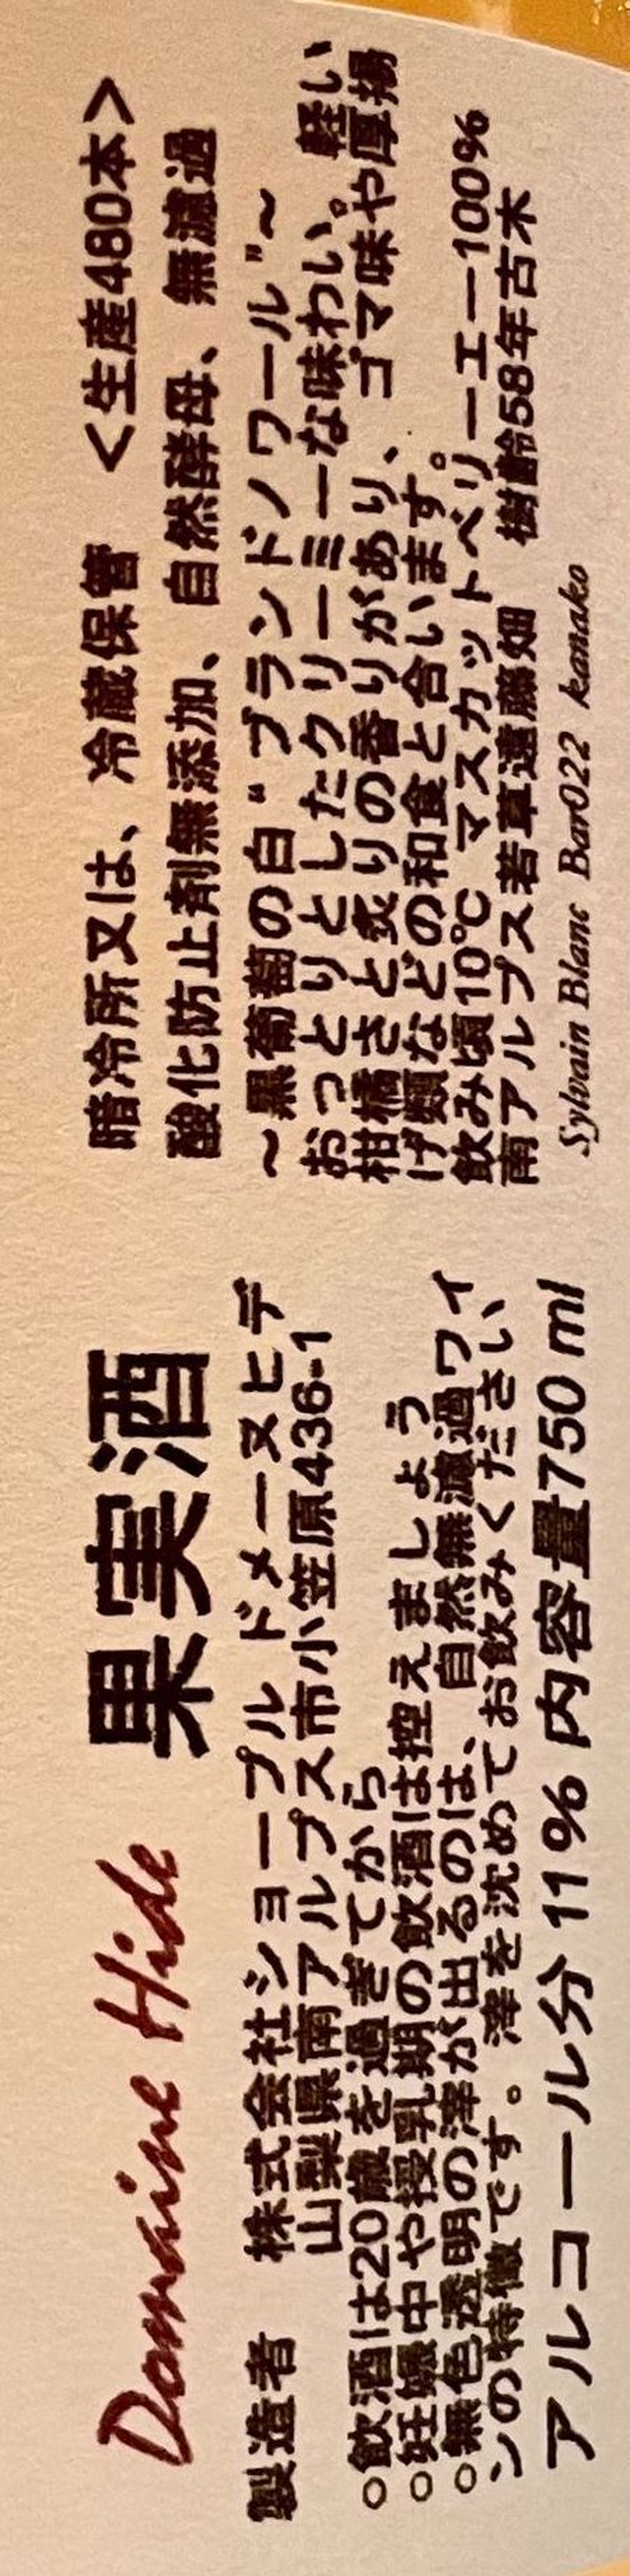 Domaine Hide 果実酒
製造者 株式会社ショープル ドメーヌヒデ
山梨県南アルプス市小笠原436-1
○飲酒は20歳を過ぎてから
○妊娠中や授乳期の飲酒は控えましょう
○無色透明の澤が出るのは、自然無濾過ワイ
ンの特徴です。澤を沈めてお飲みください
アルコール分 11% 内容量750 ml
暗冷所又は、冷蔵保管 <生産480本>
酸化防止剤無添加、自然酵母、無濾過
~黒葡萄の白“ブランドノワール”~
おっとりとしたクリーミーな味わい。軽い
柑橘さと炙りの香りがあり、ゴマ味や厚揚
げ類などの和食と合います。
飲み頃10℃ マスカットベリーエー100%
南アルプス若草遠藤畑 樹齢58年古木
Sylvain Blanc Bar022 kanako